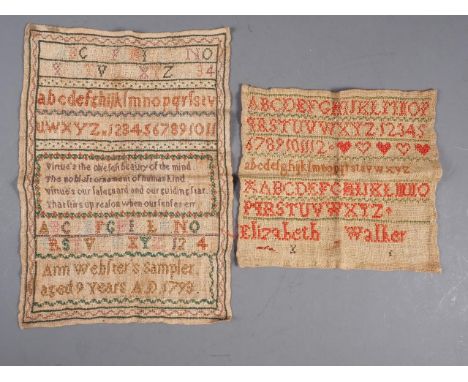 C F I Y NO
X V X Z 3 4
abcdefghijklmnopqrſstv
uwxyz.1234567891011
Virtue's the chiefest beauty of the mind
The noblest ornament of human kind
Virtue's our safeguard and our guiding star
That stirs up reason when our senses err
A C F G I L NO
R S T V X Y Z 12 4
Ann Webster's sampler
aged 9 Years A.D. 1798
ABCDEFGHIJKLMNOP
QRSTUVWXYZ12345
6789101112
abcdefghijklmnopqrſstuvwxyz
ABCDEFGHIJKLMNO
PQRSTUVWXYZ
Elizabeth Walker